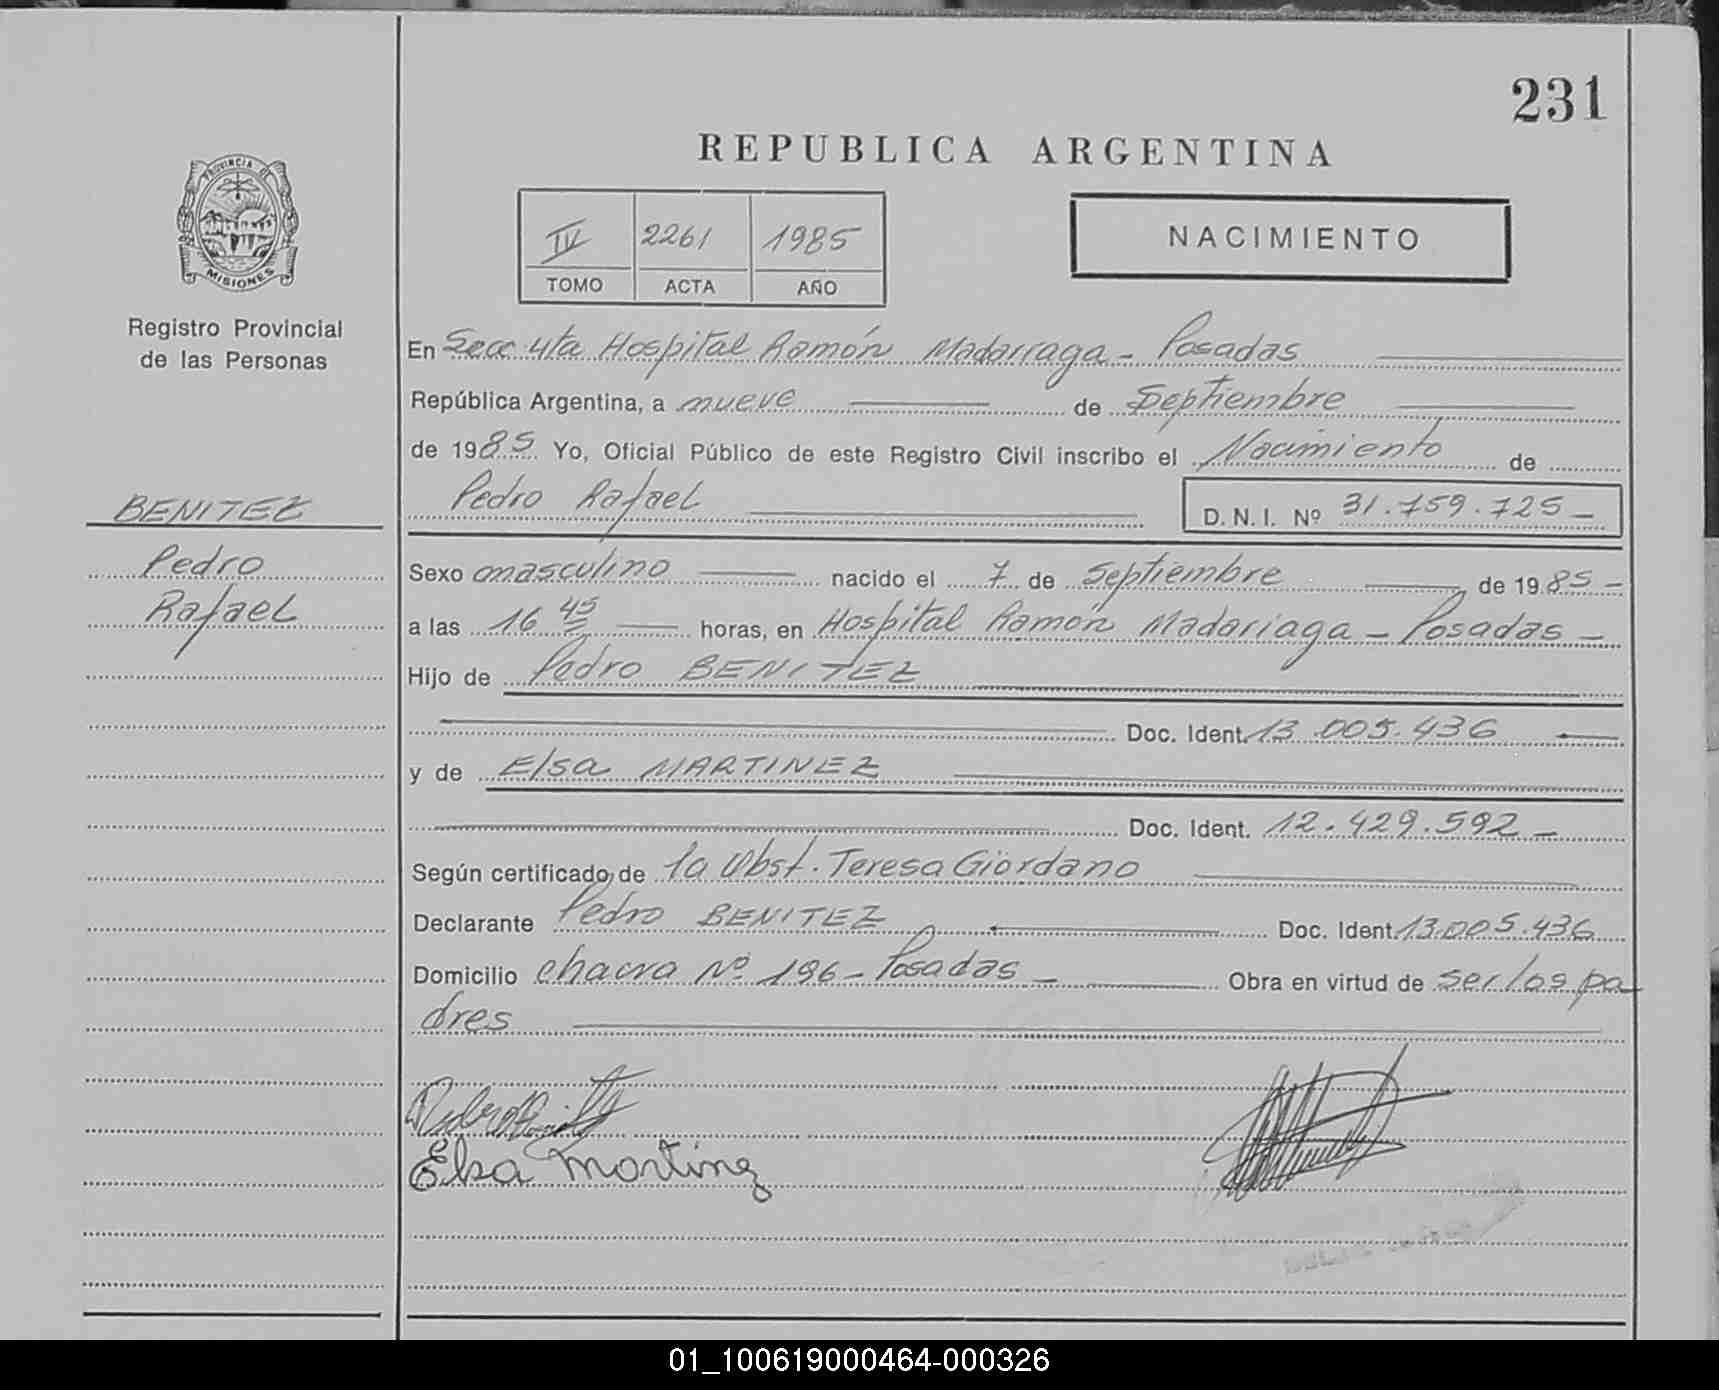 231
REPUBLICA ARGENTINA
IV 2261 1985
TOMO ACTA AÑO
NACIMIENTO
PROVINCIA DE MISIONES
Registro Provincial
de las Personas
BENITEZ
Pedro
Rafael
En Secc 4ta Hospital Ramón Madarraga - Posadas
República Argentina, a nueve de Septiembre
de 1985 Yo, Oficial Público de este Registro Civil inscribo el Nacimiento de
Pedro Rafael D.N.I. Nº 31.759.725 -
Sexo masculino nacido el 7 de Septiembre de 1985 -
a las 16 45 horas, en Hospital Ramón Madariaga - Posadas -
Hijo de Pedro BENITEZ
Doc. Ident. 13.005.436
y de Elsa MARTINEZ
Doc. Ident. 12.429.592 -
Según certificado de la Obst. Teresa Giordano
Declarante Pedro BENITEZ Doc. Ident. 13.005.436
Domicilio chacra Nº 196 - Posadas - Obra en virtud de ser los pa
dres
Elsa Martinez
01_100619000464-000326